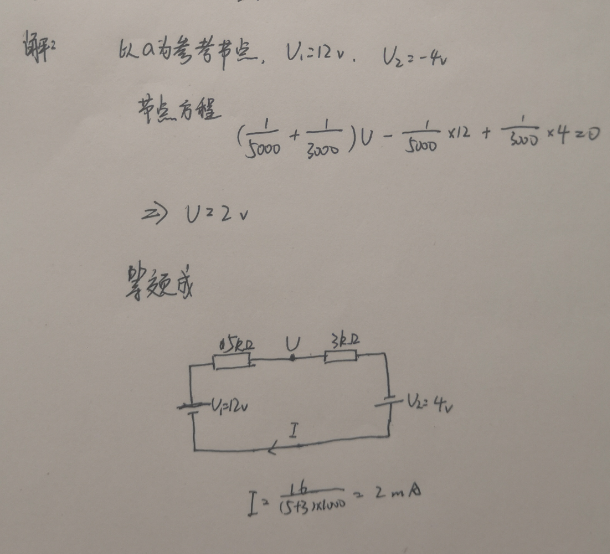 解: 以a为参考节点, U₁=12v, U₂=-4v
节点方程
(1/5000 + 1/3000)U - 1/5000 ×12 + 1/3000 ×4=0
=> U=2v
等效成
5kΩ U 3kΩ
U₁=12v U₂=4v
I
I = 16/(5+3)×1000 = 2mA